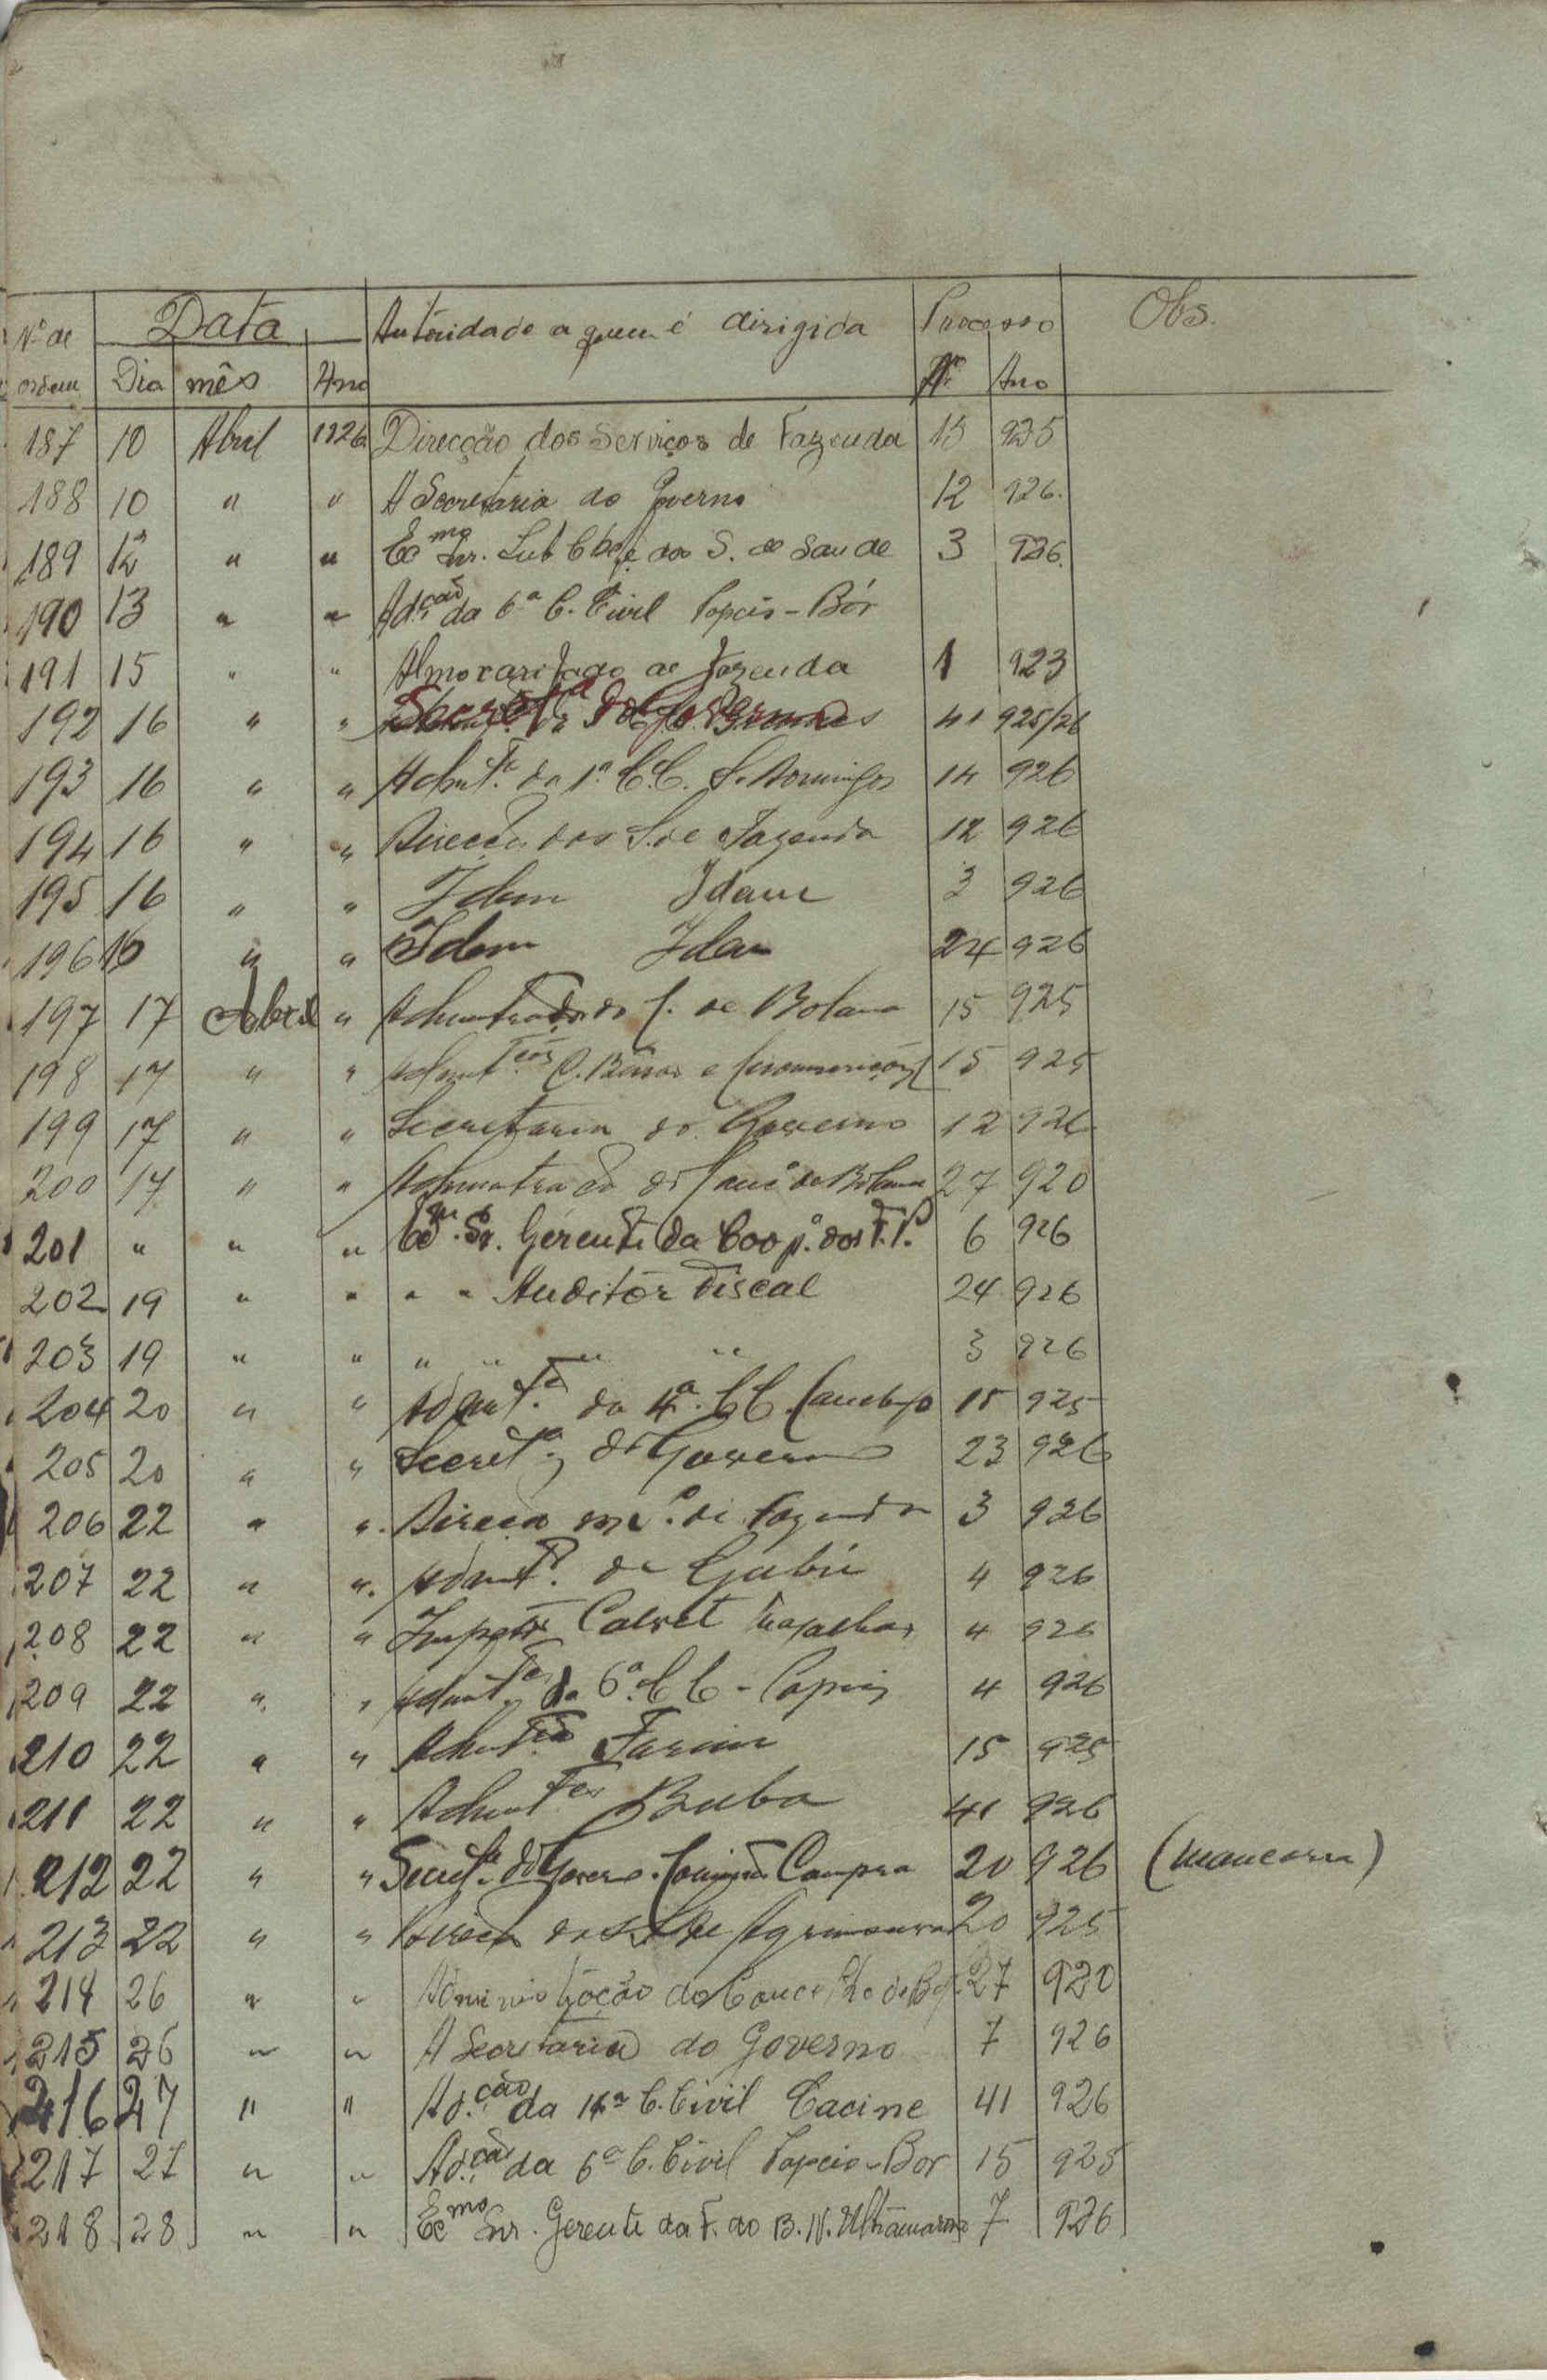 Nº de Data Autoridade a quem é dirigida Processo Obs.
ordem Dia mês Ano Nº Ano
187 10 Abril 1926 Direcção dos Serviços de Fazenda 15 925
188 10 " " A Secretaria do Governo 12 926.
189 12 " " Exmo Snr. Sub Chefe dos S. de Saude 3 926.
190 13 " " Ad.ção da 6ª C. Civil Papeis-Bór
191 15 " " Almoxarifado de Fazenda 1 923
192 16 " " Secretª do Governo 41 925/26
193 16 " " Admt.ª da 1ª C.C. S. Domingos 14 926
194 16 " " Direcção dos S. de Fazenda 12 926
195 16 " " Idem Idem 3 926
196 16 " " Idem Idem 24 926
197 17 Abril " do C. de Bolama 15 925
198 17 " " C. Bissau e Circunscrições 15 925
199 17 " " Secretaria do Governo 12 926
200 17 " " do Conc.º de Bolama 27 920
201 " " " Exmº. Sr. Gerente da Coop.º dos F.P. 6 926
202 19 " " " " Auditor Fiscal 24 926
203 19 " " " " " " 3 926
204 20 " " Admt.ª da 4ª. C.C. 15 925
205 20 " " Secret.ª do Governo 23 926
206 22 " " Direcção de Fazenda 3 926
207 22 " " Admt.º de Gabú 4 926
208 22 " " Calvet 4 926
209 22 " " Admt.ª da 6ª. C.C - Papeis 4 926
210 22 " " Farim 15 925
211 22 " " Buba 41 926
212 22 " " Secret.ª do Governo. Compra 20 926 (mancarra)
213 22 " " Direcção dos S. de Agrimensura 20 925
214 26 " " Administração do Concelho de B 27 920
215 26 " " A Secretaria do Governo 7 926
216 27 " " Ad.ção da 11ª C. Civil Cacine 41 926
217 27 " " Ad.ção da 6ª C. Civil Papeis-Bor 15 925
218 28 " " Exmo Snr. Gerente da F. do B. N. Ultramarino 7 926